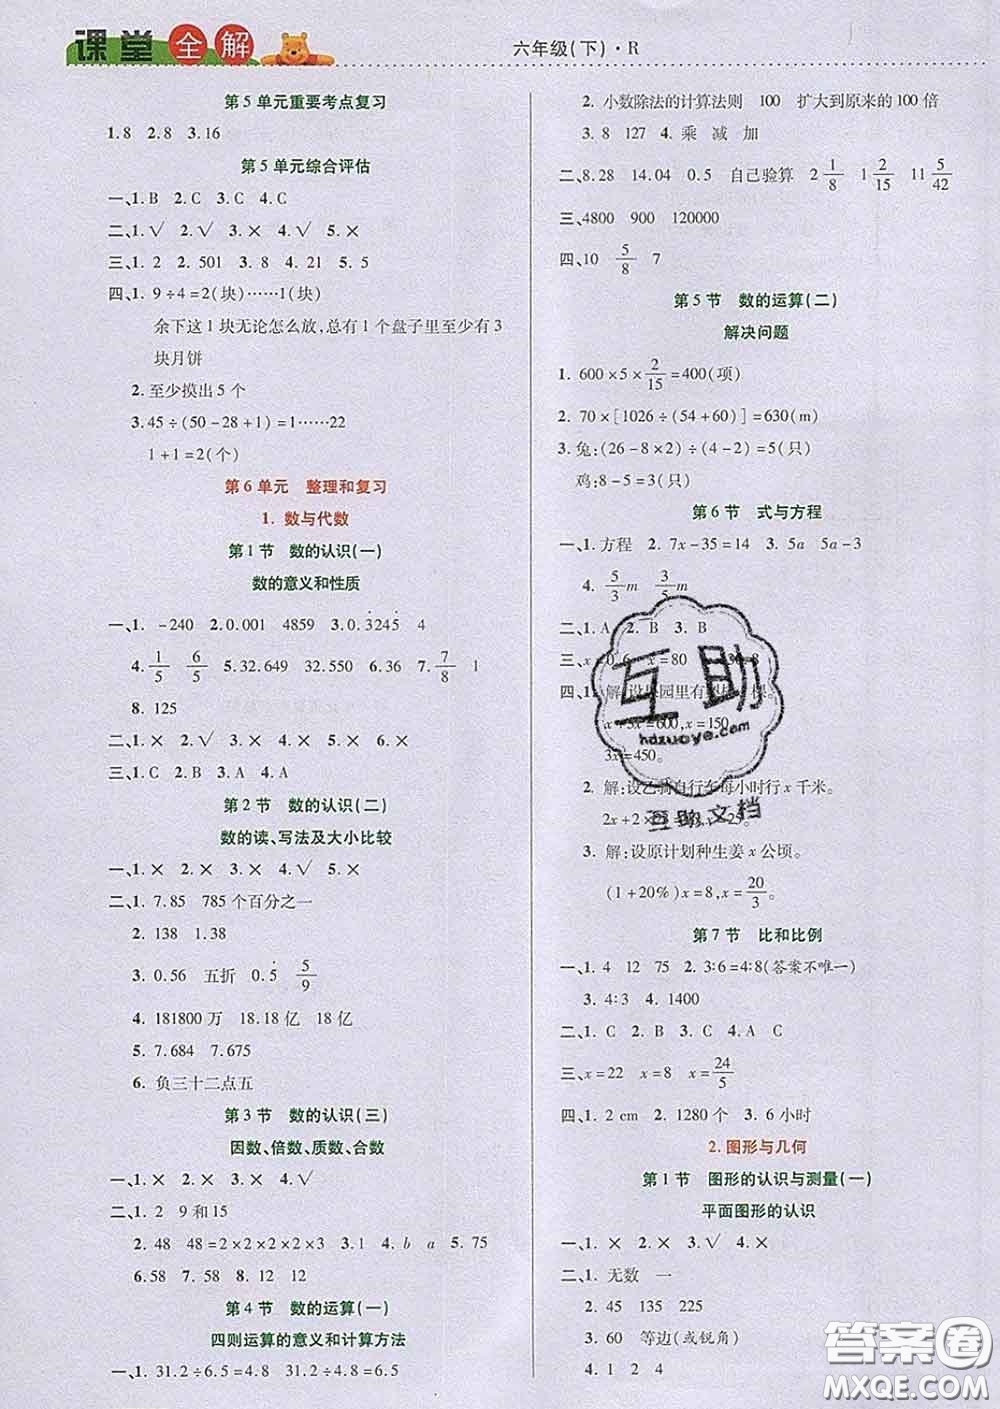 课堂全解
六年级(下)·R
第5单元重要考点复习
1.8 2.8 3.16
第5单元综合评估
一、1.B 2.C 3.C 4.C
二、1.√ 2.√ 3.× 4.√ 5.×
三、1.2 2.501 3.8 4.21 5.5
四、1. 9÷4=2(块)……1(块)
余下这1块无论怎么放,总有1个盘子里至少有3
块月饼
2.至少摸出5个
3.45÷(50-28+1)=1……22
1+1=2(个)
第6单元 整理和复习
1. 数与代数
第1节 数的认识(一)
数的意义和性质
一、1. -240 2.0.001 4859 3.0.3̇245̇ 4
4. 1/5 6/5 5.32.649 32.550 6.36 7. 7/8 1
8. 125
二、1.× 2.√ 3.× 4.×
三、1.C 2.B 3.A 4.A
第2节 数的认识(二)
数的读、写法及大小比较
一、1.× 2.× 3.× 4.√ 5.×
二、1. 7.85 785个百分之一
2. 138 1.38
3. 0.56 五折 0.5̇ 5/9
4. 181800万 18.18亿 18亿
5. 7.684 7.675
6. 负三十二点五
第3节 数的认识(三)
因数、倍数、质数、合数
一、1.× 2.× 3.× 4.√ 5.×
二、1. 2 9和15
2. 48 48=2×2×2×2×3 3.1 4.b a 5.75
6.58 7. 58 8. 12 12
第4节 数的运算(一)
四则运算的意义和计算方法
一、1. 31.2÷6.5=4.8 31.2÷4.8=6.5
2. 小数除法的计算法则 100 扩大到原来的100倍
3. 8 127 4. 乘 减 加
二、8.28 14.04 0.5 自己验算 2 1/8 1 2/15 11 5/42
三、4800 900 120000
四、10 5/8 7
第5节 数的运算(二)
解决问题
1. 600×5×2/15=400(项)
2. 70×[1026÷(54+60)]=630(m)
3. 兔:(26-8×2)÷(4-2)=5(只)
鸡:8-5=3(只)
第6节 式与方程
一、1.方程 2. 7x-35=14 3. 5a 5a-3
4. 5/3 m 3/5 m
二、1.A 2.B 3.B
三、x=0.6 x=80
四、1. 解:设果园里有 棵。
=600,x=150,
3x=450。
2. 解:设乙骑自行车每小时行x千米。
2x+2×
3. 解:设原计划种生姜x公顷。
(1+20%)x=8,x=20/3。
第7节 比和比例
一、1. 4 12 75 2. 3∶6=4∶8(答案不唯一)
3. 4∶3 4. 1400
二、1.C 2.B 3.A 4.C
三、x=22 x=8 x=24/5
四、1. 2 cm 2. 1280个 3. 6小时
2.图形与几何
第1节 图形的认识与测量(一)
平面图形的认识
一、1.× 2.× 3.√ 4.×
二、1. 无数 一
2. 45 135 225
3. 60 等边(或锐角)
4. 1
互助
hdzuoye.com
互助文档
答案圈
MXQE.COM